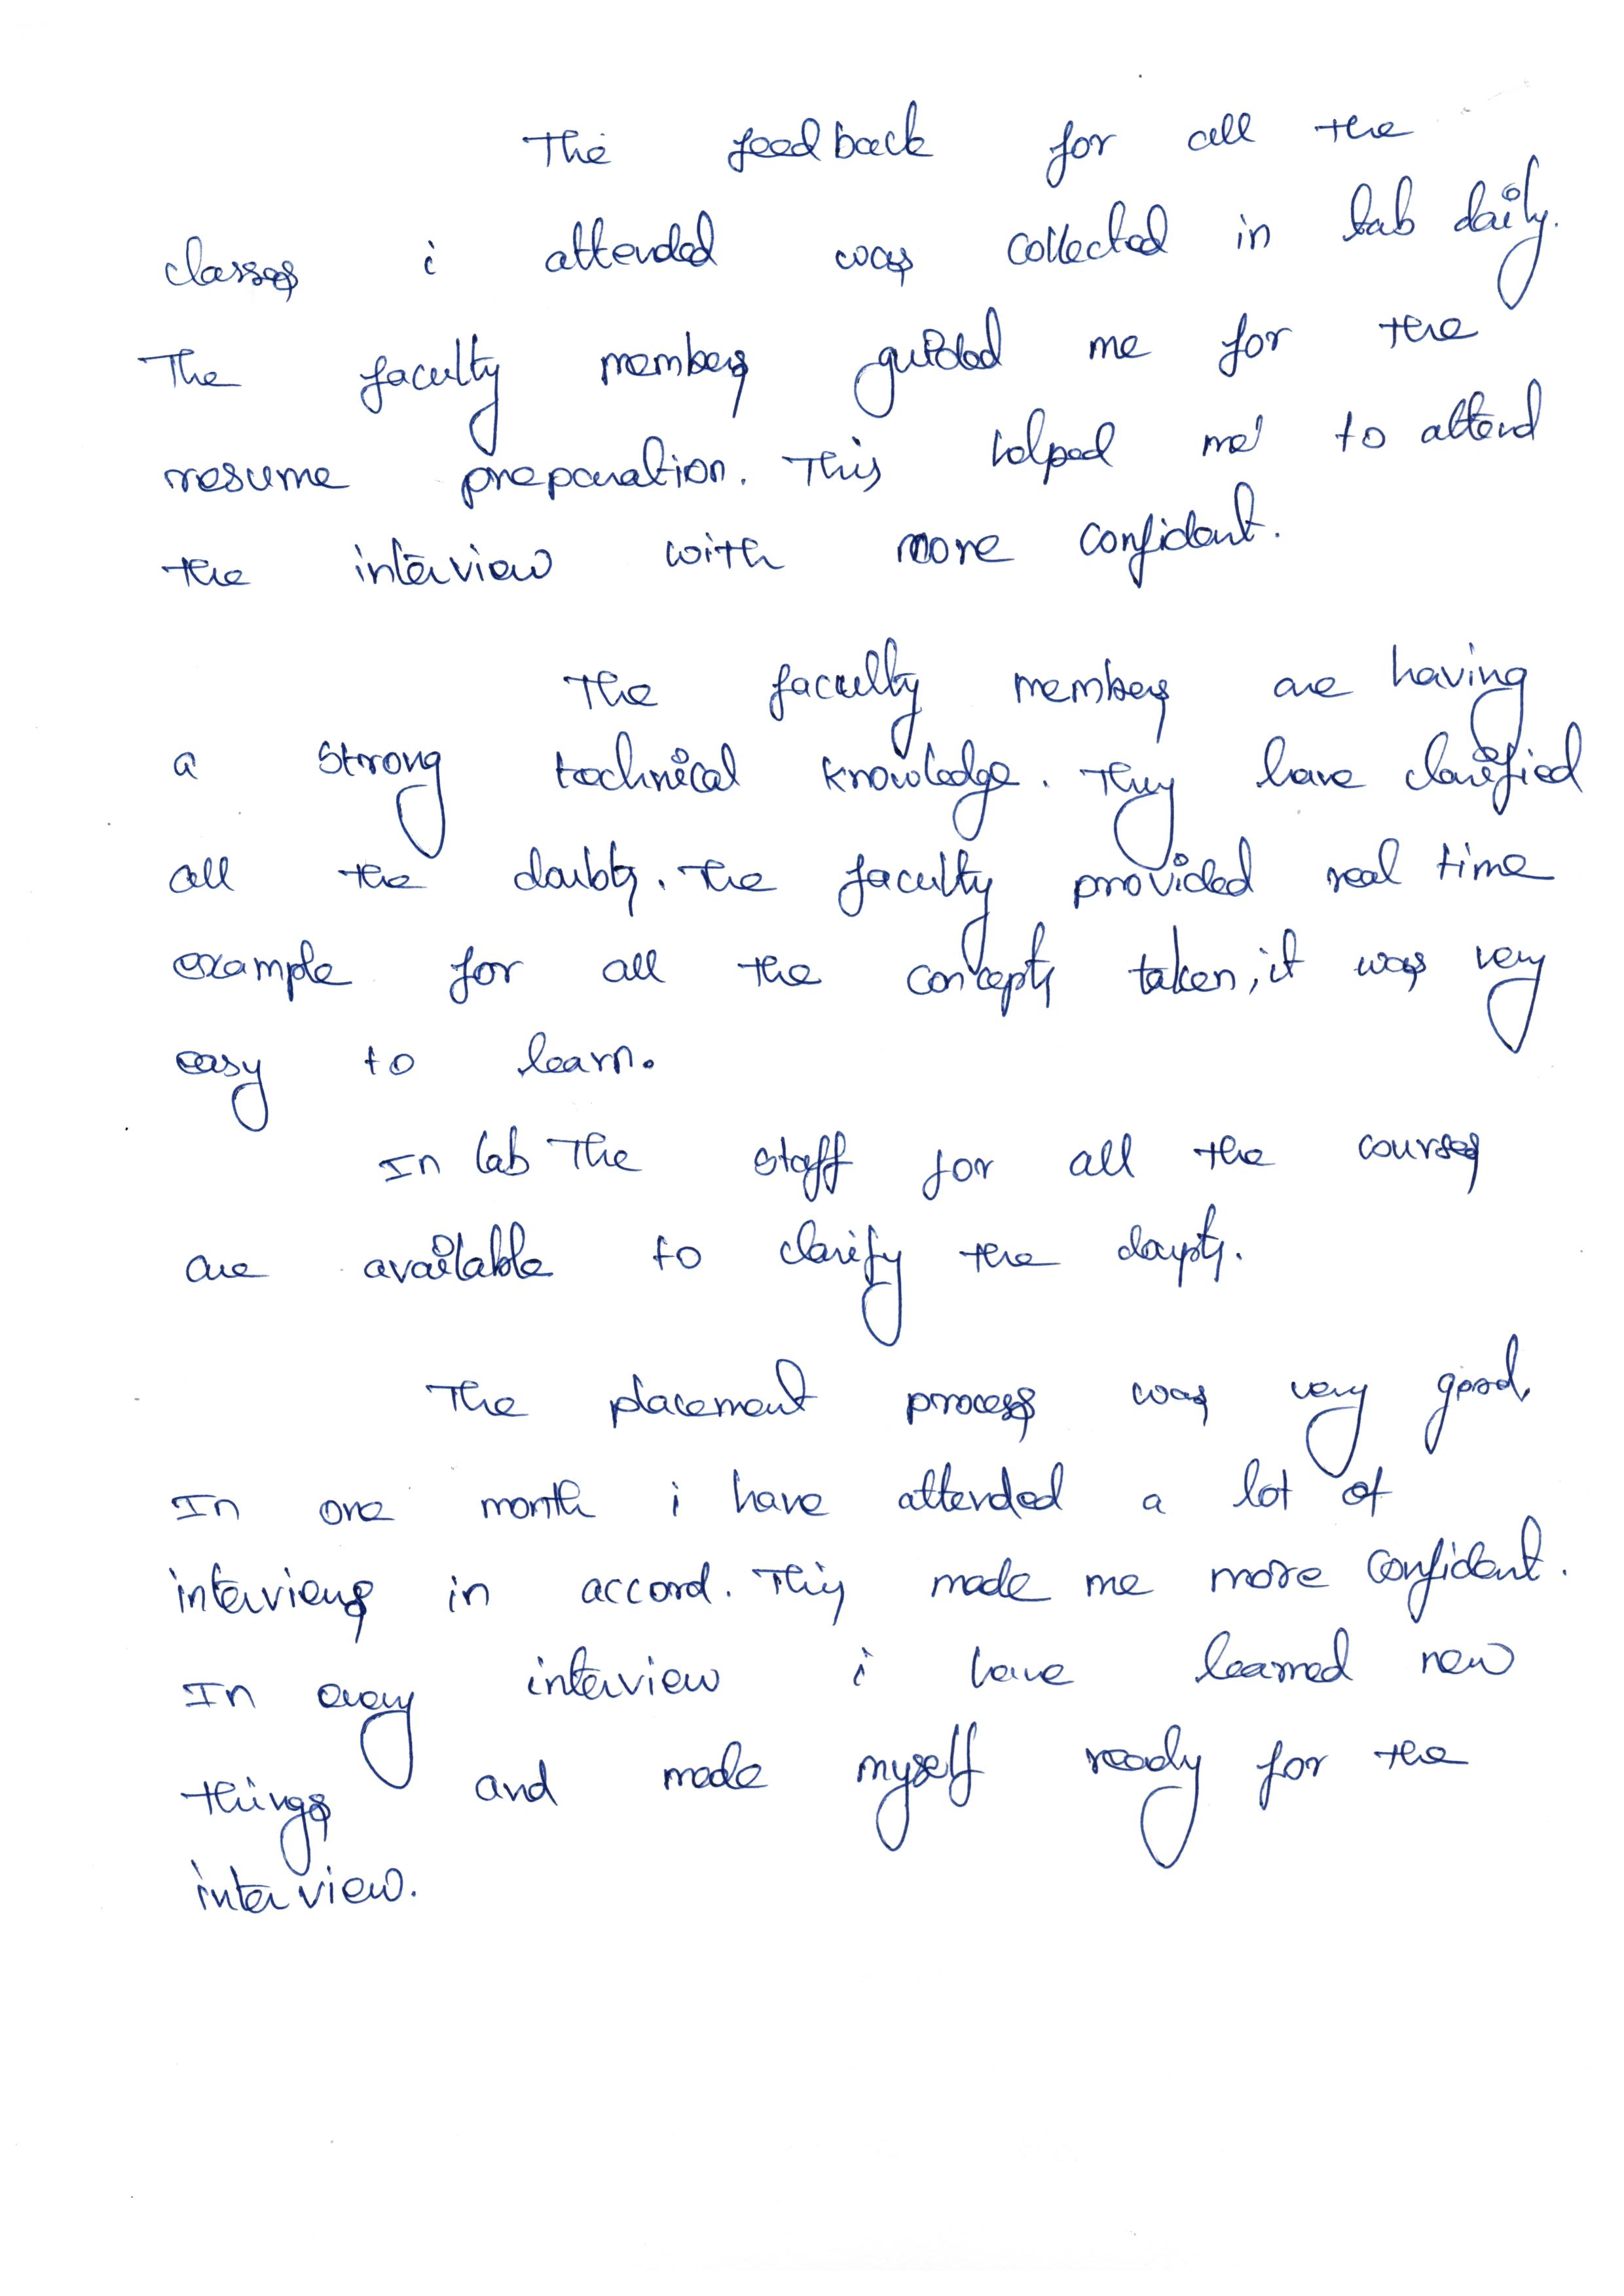 The feedback for all the
classes i attended was collected in lab daily.
The faculty members guided me for the
resume preparation. This helped me to attend
the interview with more confident.
The faculty members are having
a strong technical knowledge. They have clarified
all the doubts. The faculty provided real time
example for all the concepts taken, it was very
easy to learn.
In lab The staff for all the courses
are available to clarify the
The placement process was very good.
In one month i have attended a lot of
interviews in accord. This made me more confident.
In every interview i have learned new
things and made myself ready for the
interview.